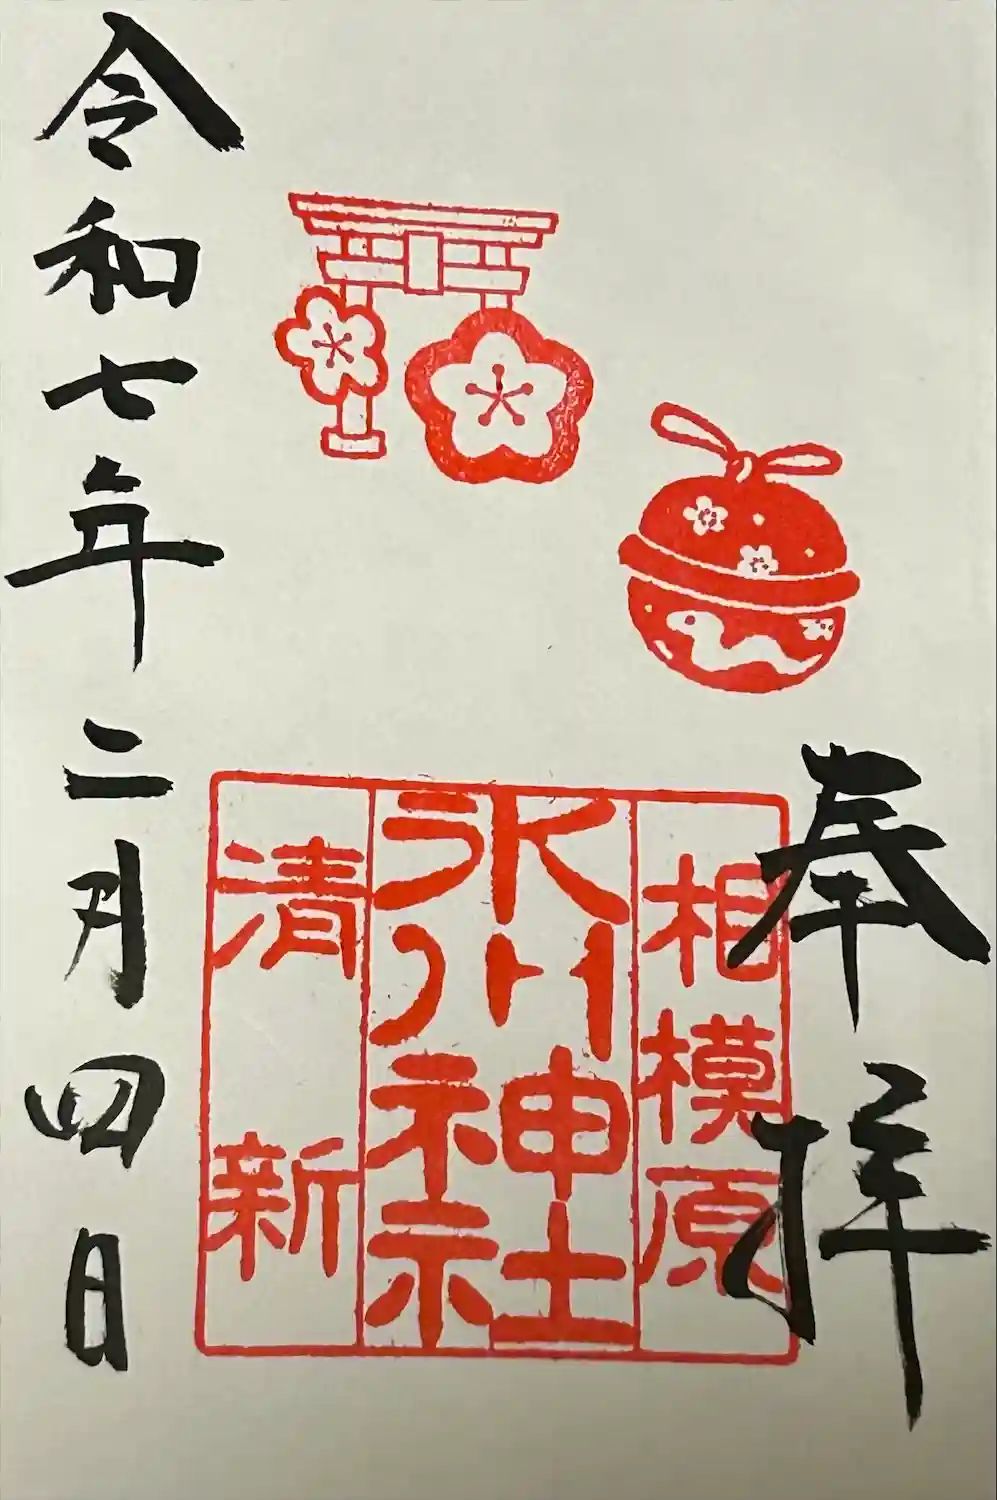 奉拝
相模原
氷川神社
清新
令和七年二月四日